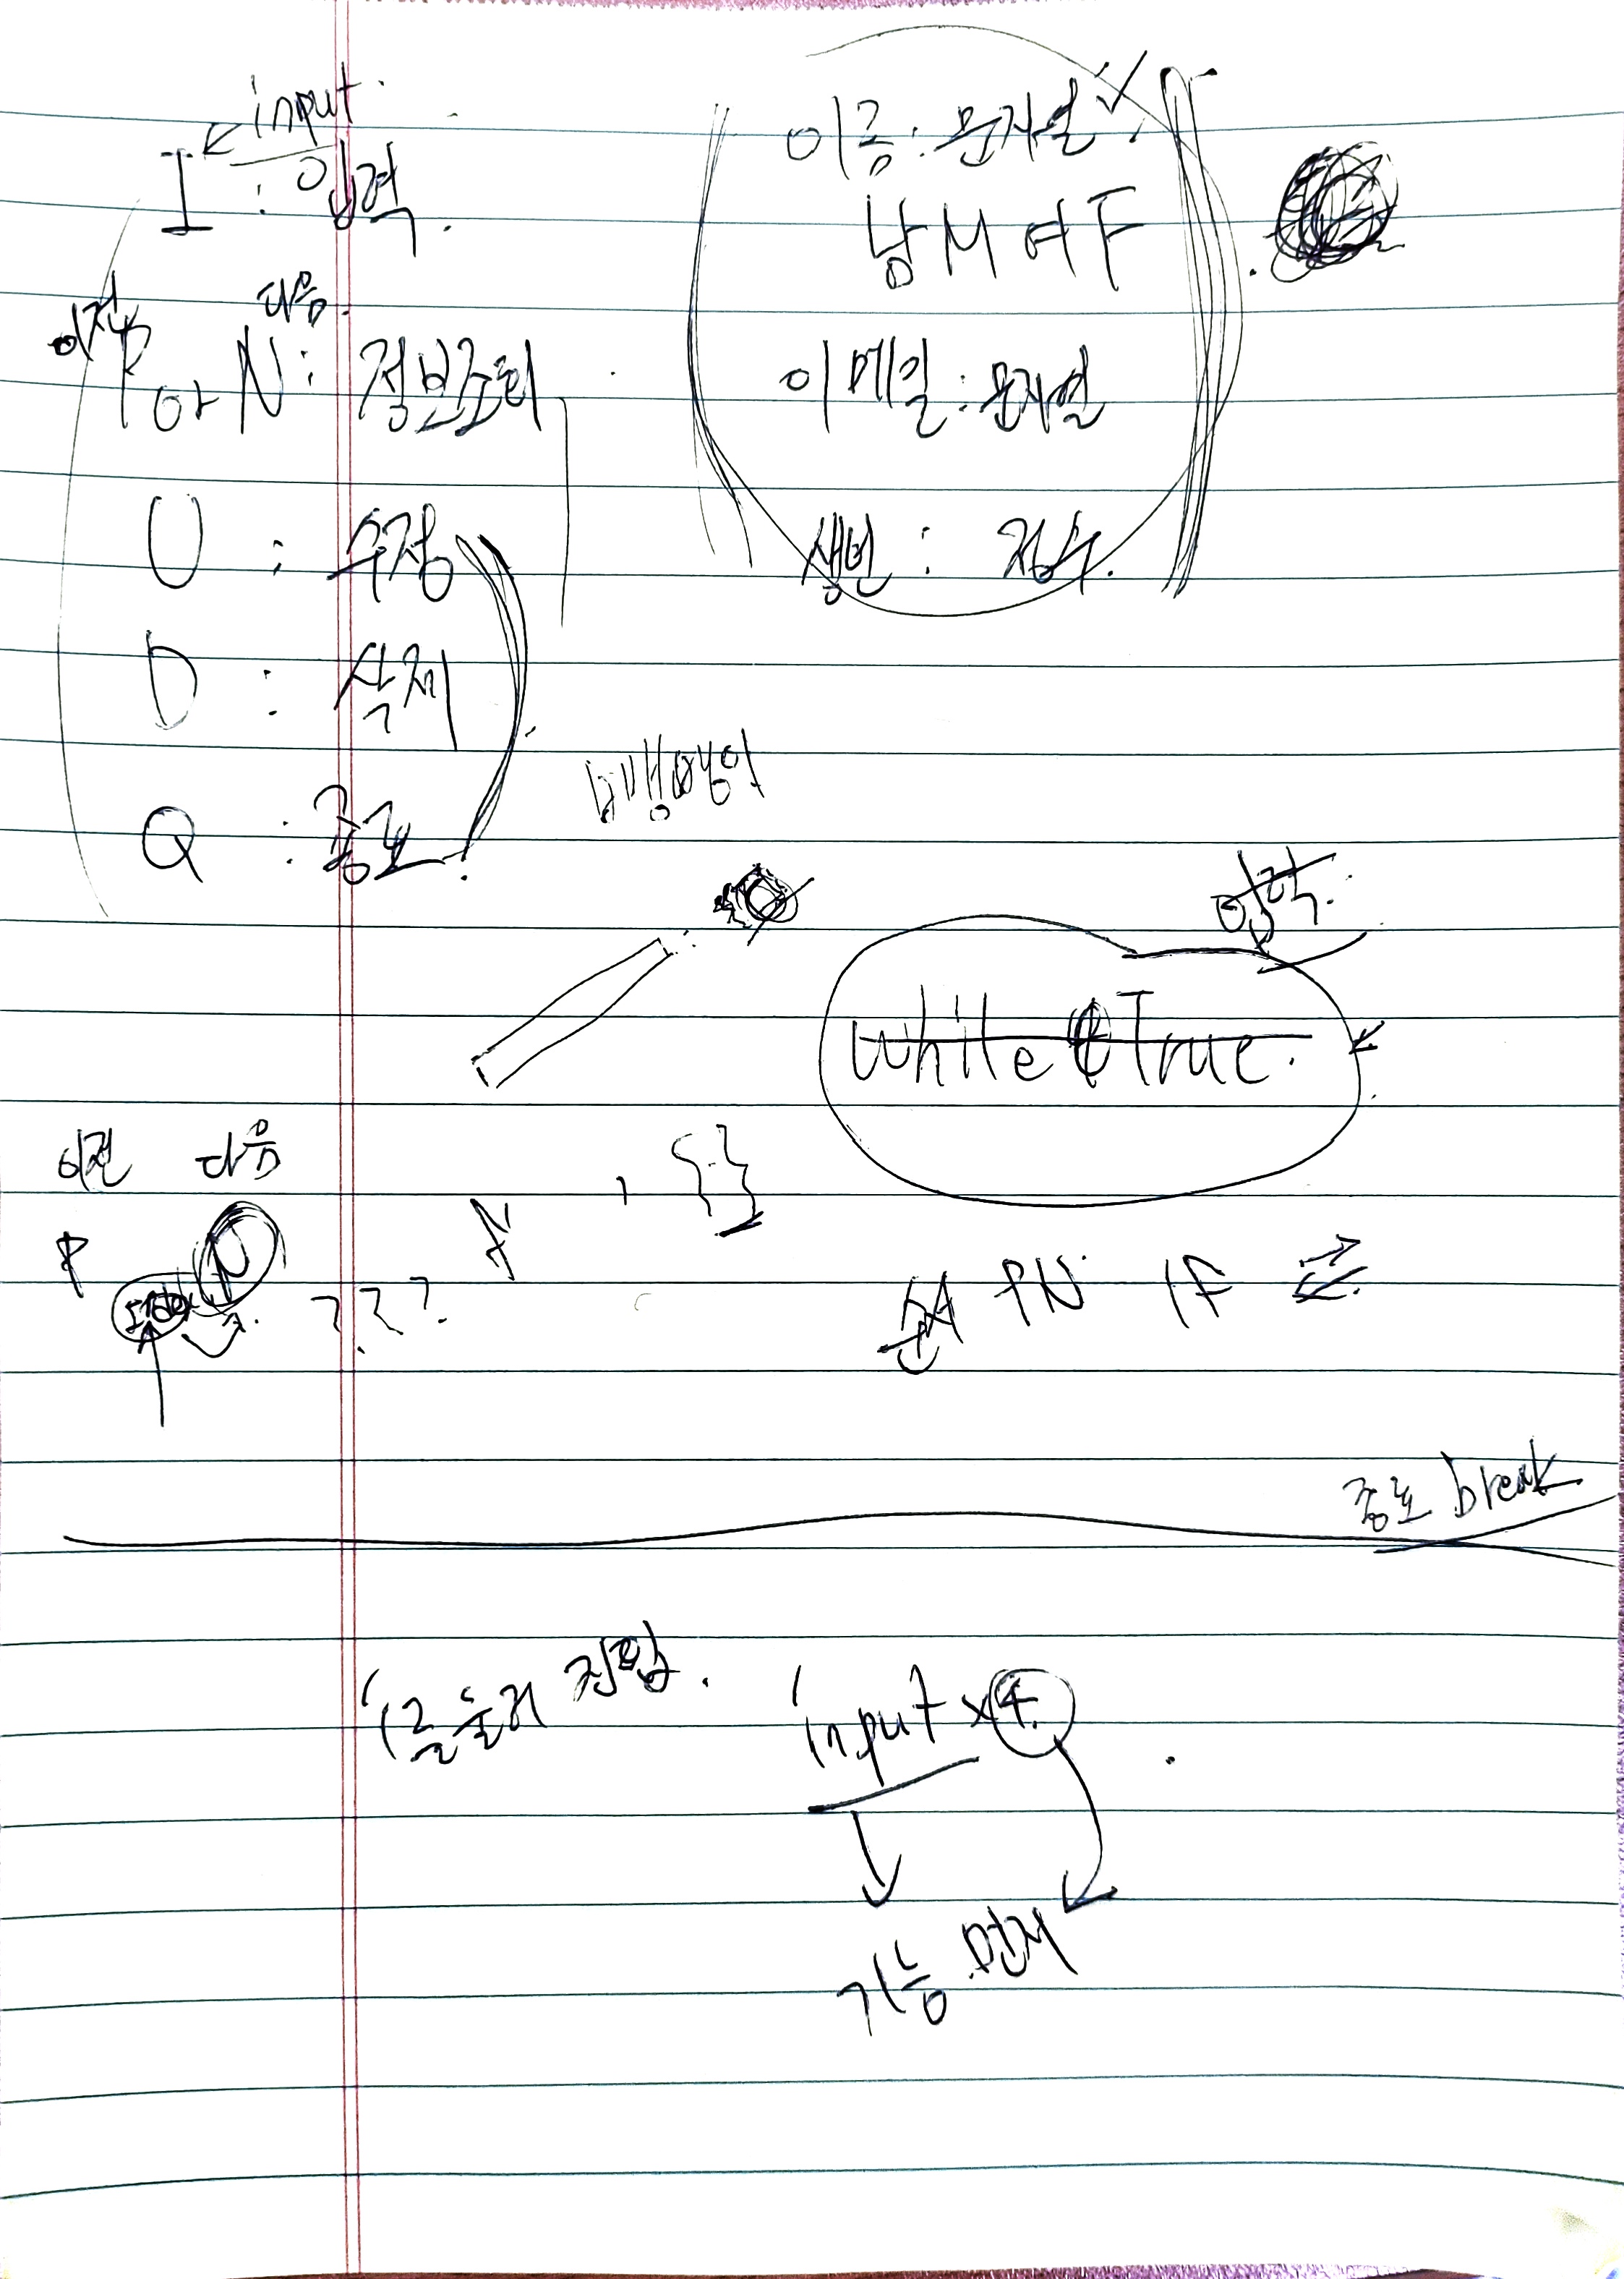 input
I : 입력.
이전 다음
P or N : 정보조회
U : 수정
D : 삭제
Q : 종료
이름 : 문자열
남 M 여 F
이메일 : 문자열
생년 : 정수
입력.
while True.
이전 다음
P index N ???
{ }
PN IF
종료 break
input x4.
기능 먼저